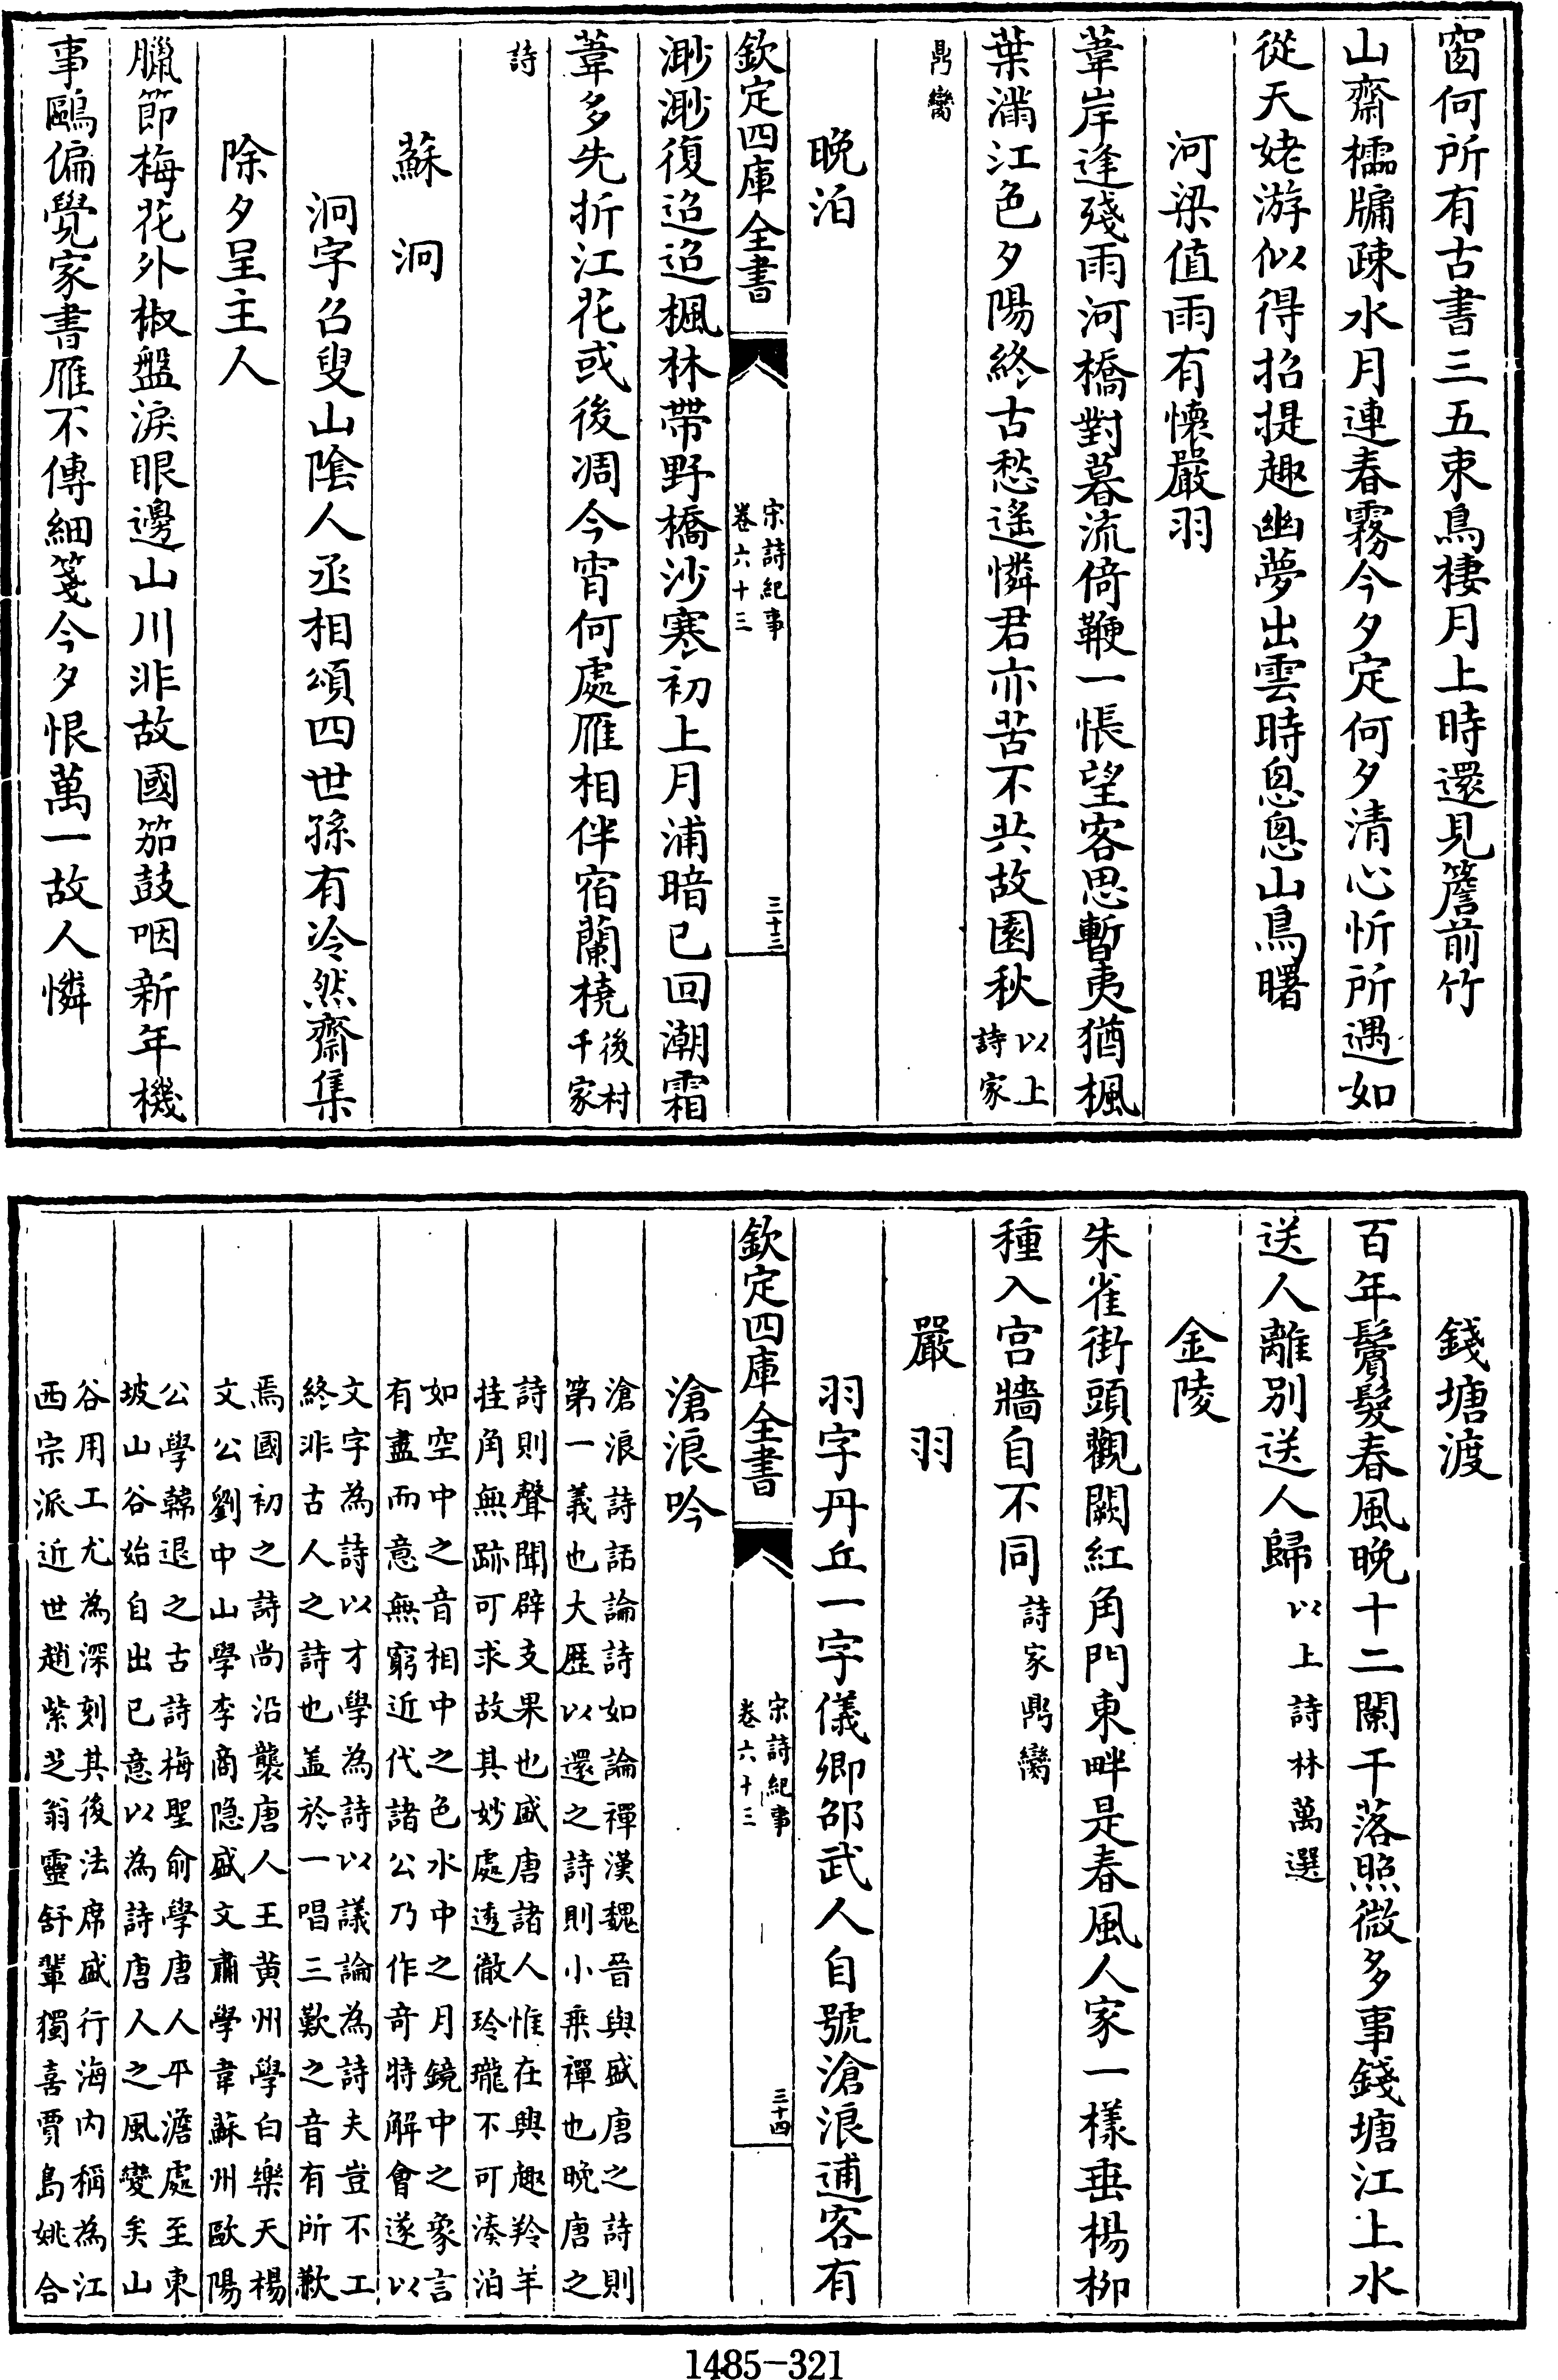 窗何所有古書三五束鳥棲月上時還見簷前竹
山齋櫺牗疎水月連春霧今夕定何夕清心忻所遇如
從天姥游似得招提趣幽夢出雲時怱怱山鳥曙
河梁值雨有懷嚴羽
葦岸逢殘雨河橋對暮流倚鞭一悵望客思暫夷猶楓
葉滿江色夕陽終古愁遙憐君亦苦不共故園秋以上
詩家
鼎臠
晚泊
欽定四庫全書
宋詩紀事
卷六十三
三十三
渺渺復迢迢楓林帶野橋沙寒初上月浦暗已回潮霜
葦多先折江花或後凋今宵何處雁相伴宿蘭橈後村
千家
詩
蘇泂
泂字召叟山陰人丞相頌四世孫有冷然齋集
除夕呈主人
臘節梅花外椒盤淚眼邊山川非故國笳鼓咽新年機
事鷗偏覺家書雁不傳細箋今夕恨萬一故人憐
錢塘渡
百年鬢髮春風晚十二闌干落照微多事錢塘江上水
送人離別送人歸以上詩林萬選
金陵
朱雀街頭觀闕紅角門東畔是春風人家一樣垂楊柳
種入宮牆自不同詩家鼎臠
嚴羽
羽字丹丘一字儀卿邵武人自號滄浪逋客有
欽定四庫全書
宋詩紀事
卷六十三
三十四
滄浪吟
滄浪詩話論詩如論禪漢魏晉與盛唐之詩則
第一義也大歷以還之詩則小乘禪也晚唐之
詩則聲聞辟支果也盛唐諸人惟在興趣羚羊
挂角無跡可求故其妙處透徹玲瓏不可湊泊
如空中之音相中之色水中之月鏡中之象言
有盡而意無窮近代諸公乃作奇特解會遂以
文字為詩以才學為詩以議論為詩夫豈不工
終非古人之詩也盖於一唱三歎之音有所歉
焉國初之詩尚沿襲唐人王黃州學白樂天楊
文公劉中山學李商隐盛文肅學韋蘇州歐陽
公學韓退之古詩梅聖俞學唐人平澹處至東
坡山谷始自出已意以為詩唐人之風變矣山
谷用工尤為深刻其後法席盛行海内稱為江
西宗派近世趙紫芝翁靈舒輩獨喜賈島姚合
1485-321